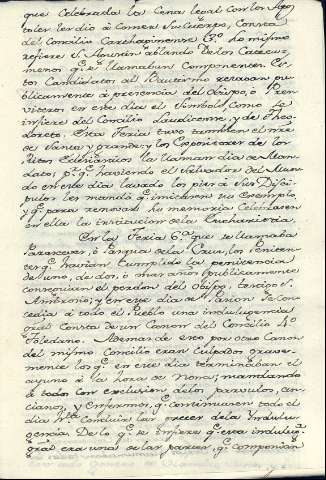 que celebrada la Cena legal con los Apos
toles les dio á comer su Cuerpo, Consta
del Concilio Carthaginense 6º lo mismo
refiere S. Agustin ablando de los Catecu
menos q.e se llamaban Componentes. Es
tos Candidatos al Bautismo rezaban pu
blicamente á presencia del Obispo, ó Pres
viteros en este dia el Simbolo, como se
infiere del Concilio Laudicense, y de Theo
doreto. Esta Feria tuvo tambien el nre
de Santa y grande, y los Expositores de los
Ritos Eclesiasticos la llaman dia de Man
dato, p.r q.e haviendo el Salvador del Mun
do en este dia lavado los pies á sus Disci
pulos les mando q.e imitaran su exemplo
y q.e para renovar su memoria Celebrasen
en ella la institucion de la Eucharistia.
En la Feria 6.a que se llamaba
Parasceve, ó Pasqua de la Cruz, los Peniten
tes q.e havian Cumplido la penitencia
de uno, ú dos, ó mas años publicamente
conseguian el perdon del Obispo, testigo S.
Ambrosio; y en este dia de Pasion se con
cedia á todo el Pueblo una indulugencia
gral. Consta de un Canon del Concilio 4º
Toledano. Ademas de esto por otro Canon
del mismo Concilio eran Culpados grave
mente los q.e en este dia terminaban el
ayuno á la hora de Nona; mandando
á todos con exclusion de los parvulos, an
cianos, y Enfermos, q.e continuasen todo el
dia h.ta concluir las preces de la Indulu
gencia. De lo q.e se infiere q.e esta indulug.a
gral. era unas se las preces, q.e componian